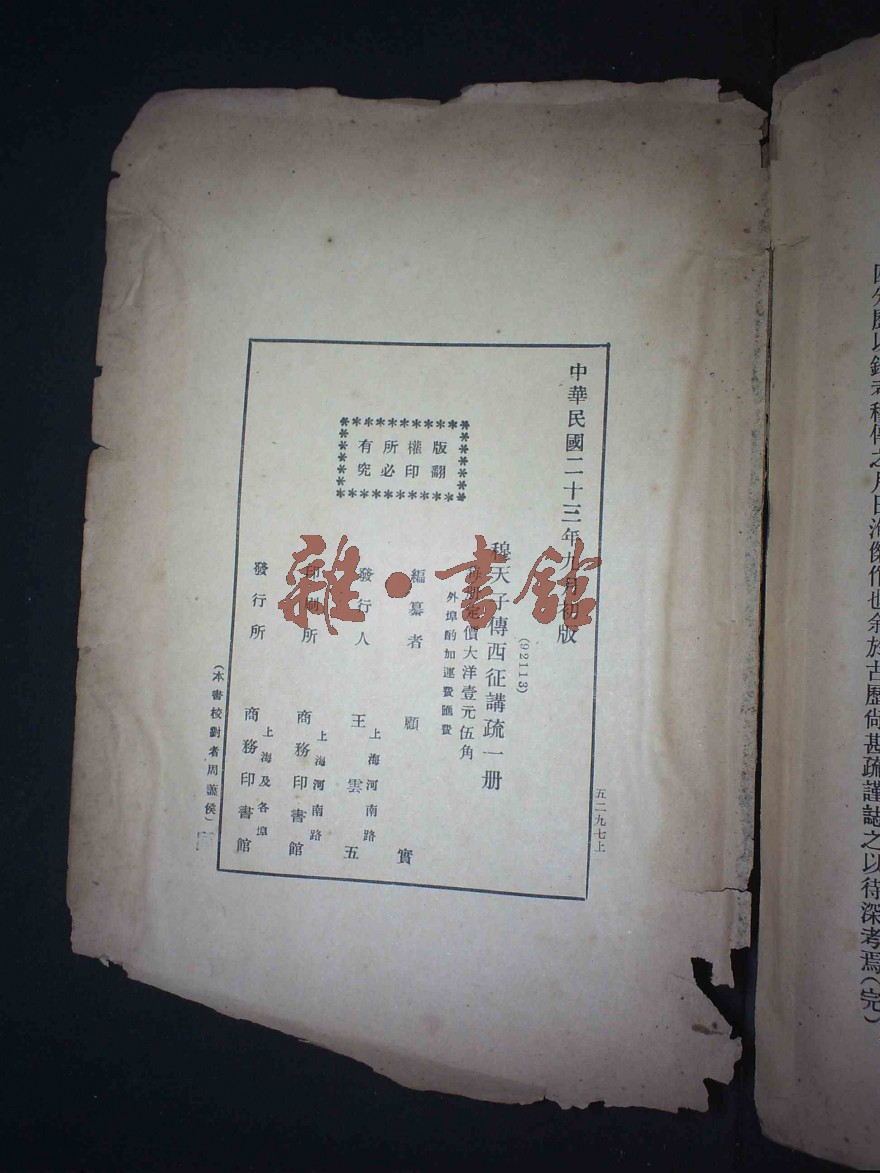 四分歷以錄考穆傳之月日洵傑作也余於古歷尙甚疏謹誌之以待深考焉(完)
中華民國二十三年九月初版
五二九七上
(92113)
穆天子傳西征講疏一册
每册定價大洋壹元伍角
外埠酌加運費匯費
版權所有
翻印必究
編纂者 顧實
發行人 王雲五
上海河南路
印刷所 商務印書館
上海河南路
發行所 商務印書館
上海及各埠
(本書校對者周蕙侯)
雜·書館